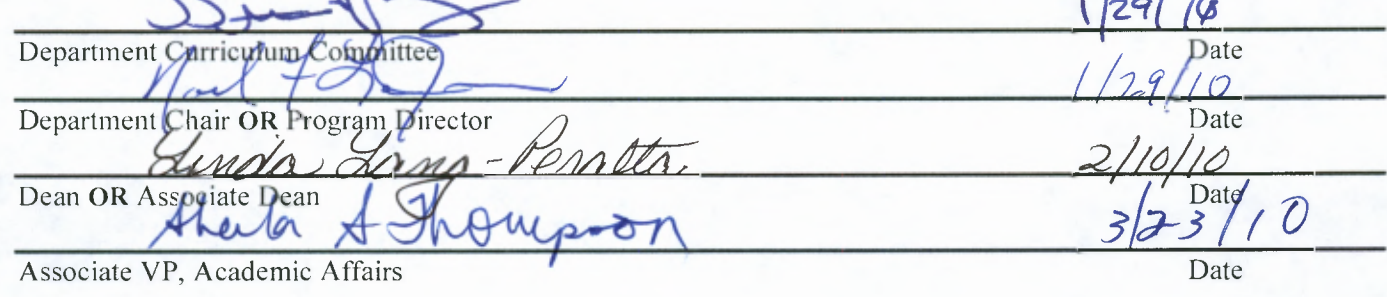 1/29/10
Department Curriculum Committee Date
1/29/10
Department Chair OR Program Director Date
Linda Lang-Peralta 2/10/10
Dean OR Associate Dean Date
Sheila S Thompson 3/23/10
Associate VP, Academic Affairs Date